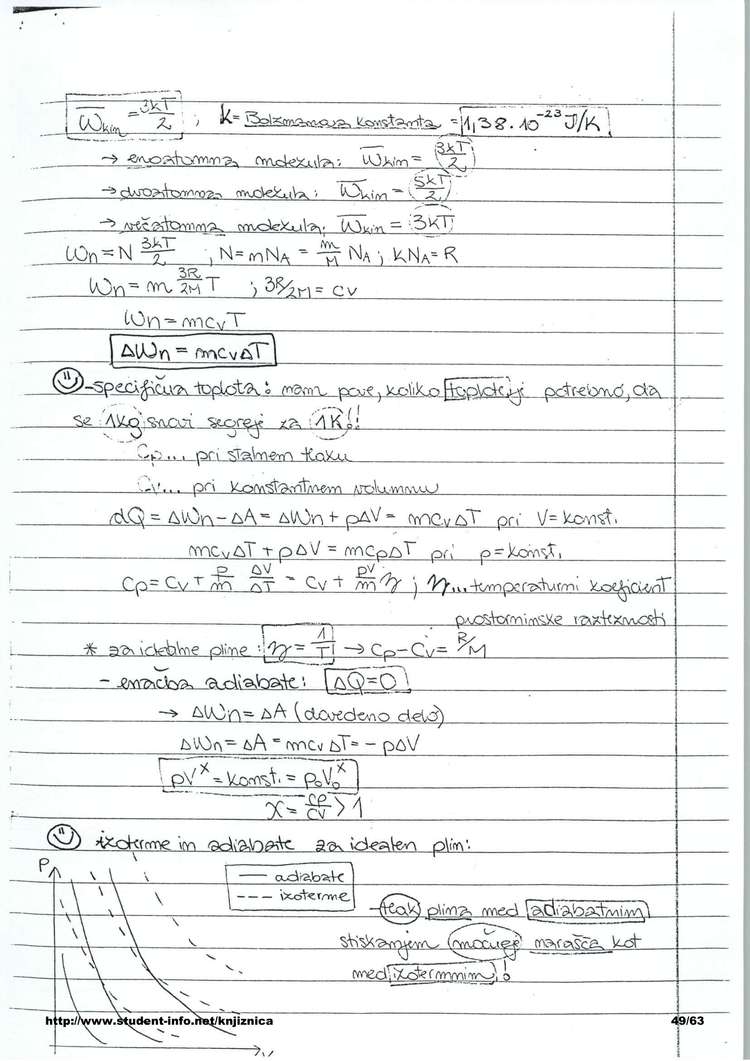 W̅kin = 3kT/2 ; k = Bolzmanova konstanta = 1,38·10⁻²³ J/K
→ enoatomna molekula: W̅kin = 3kT/2
→ dvoatomna molekula: W̅kin = 5kT/2
→ večatomna molekula: W̅kin = 3kT
Wn = N 3kT/2 ; N = mNA = m/M NA ; kNA = R
Wn = m 3R/2M T ; 3R/2M = cv
Wn = mcvT
ΔWn = mcvΔT
- specifična toplota: nam pove, koliko toplote je potrebno, da
se 1kg snovi segreje za 1K!!
Cp... pri stalnem tlaku
Cv... pri konstantnem volumnu
dQ = ΔWn - ΔA = ΔWn + pΔV = mcvΔT pri V = konst.
mcvΔT + pΔV = mcpΔT pri p = konst.
Cp = Cv + p/m ΔV/ΔT = Cv + pV/m η ; η... temperaturni koeficient
prostorninske razteznosti
* za idealne pline: η = 1/T → Cp - Cv = R/M
- enačba adiabate: ΔQ = 0
→ ΔWn = ΔA (dovedeno delo)
ΔWn = ΔA = mcvΔT = - pΔV
pVˣ = konst. = p₀V₀ˣ
χ = cp/cv > 1
izoterme in adiabate za idealen plin:
P
— adiabate
--- izoterme
- tlak plina med adiabatnim
stiskanjem močneje narašča kot
med izotermnim!
http://www.student-info.net/knjiznica 49/63
V